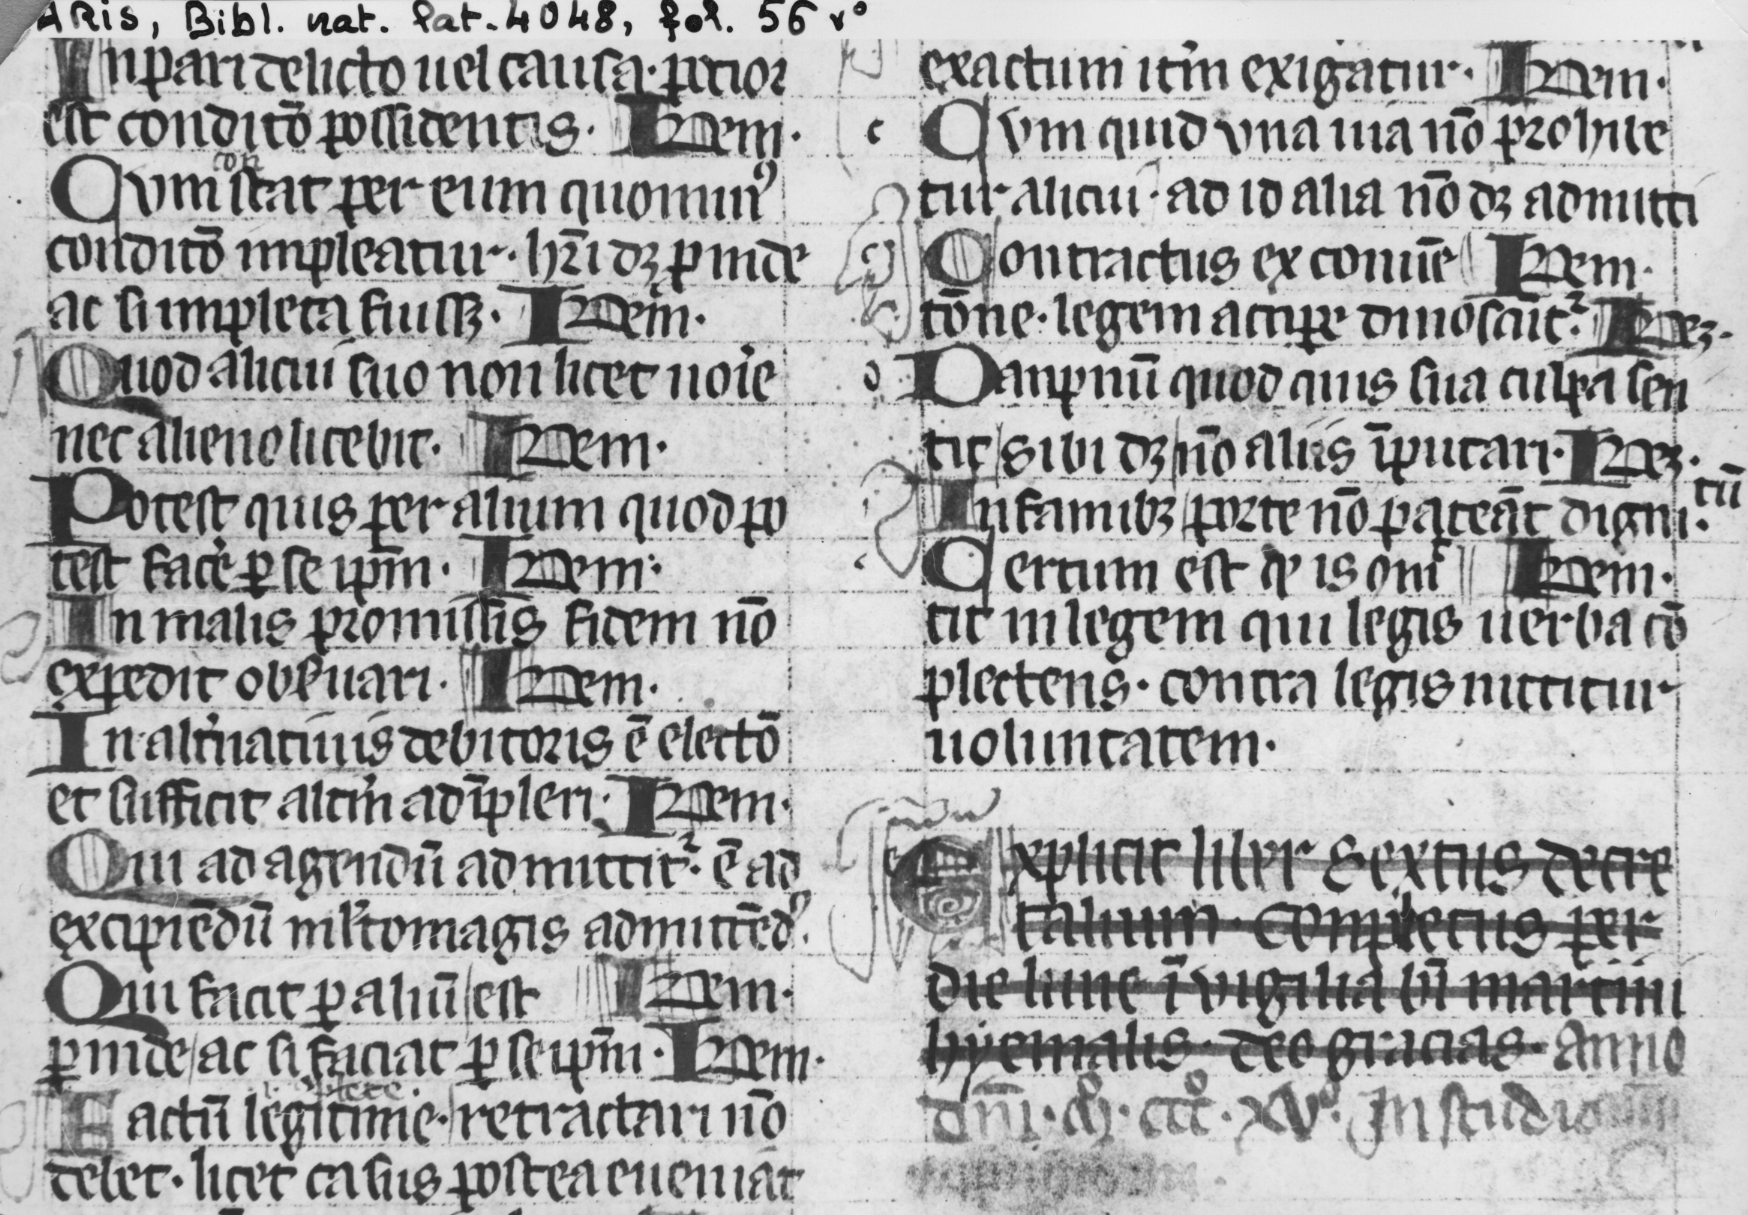 ARIS, Bibl. nat. lat. 4048, fol. 56 rº
In pari delicto uel causa· pocior
est conditō possidentis· Idem·
Cum constat per eum quominꝰ
conditō impleatur· hr̄i dꝫ perinde
ac si impleta fuissꝫ· Idem·
Quod alicui suo non licet noīe
nec alieno licebit· Idem·
Potest quis per alium quod po
test facē ꝑ se ip̄m· Idem·
In malis promissis fidem nō
expedit obẜuari· Idem·
In alt̄natiuis debitoris ē electō
et sufficit altm̄ ad īpleri· Idem·
Qui ad agendū admittit᷑· ē ad
excipiēdū ml̄tomagis admittēdꝰ·
Qui facit ꝑ aliū est Idem·
ꝑinde ac si faciat ꝑ se ip̄m· Idem·
Factū legitime· retractari nō
debet· licet casus postea eueniat
exactum itm̄ exigatur· Idem·
c Cum quid una uia nō prohibe
tur alicui· ad id alia nō dꝫ admitti
Contractus ex conuē Idem·
tōne· legem accipere dinoscūt᷑· Ideꝫ·
d Dampnū quod quis sua culpa sen
tit sibi dꝫ nō aliis īputari· Ideꝫ·
Infamibꝫ porte nō pateāt digni·tū
Certum est ꝙ is omī Idem·
tit in legem qui legis uerba cō
plectens· contra legis nittitur
uoluntatem·
Explicit liber sextus decre
talium· completus per
die lune ī vigilia bī martini
hyemalis· deo gracias· Anno
dn̄i· M̊· ccc̊· xv̊· In studio